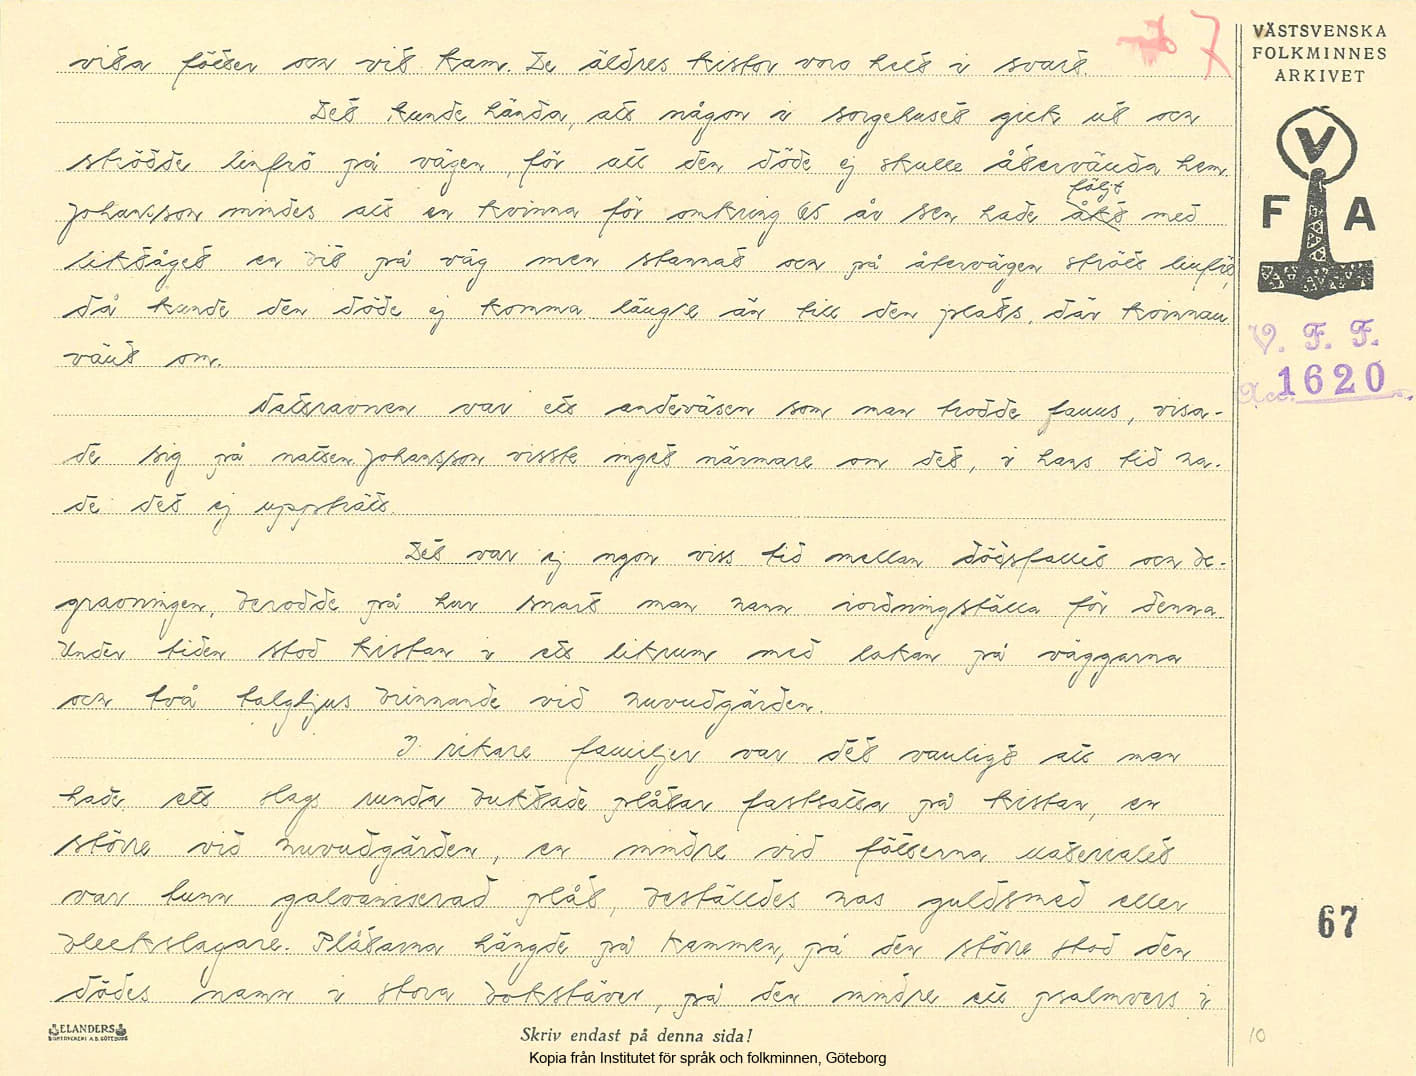 7
VÄSTSVENSKA
FOLKMINNES
ARKIVET
V
F A
V. F. F.
Acc. 1620
vita fötter och vit kam. De äldres kistor voro helt i svart.
Det kunde hända, att någon i sorgehuset gick ut och
strödde linfrö på vägen, för att den döde ej skulle återvända hem.
Johansson mindes att en kvinna för omkring 65 år sen hade åkt följt med
liktåget en bit på väg men stannat och på återvägen strött linfrö,
då kunde den döde ej komma längre än till den plats, där kvinnan
vänt om.
Nattravnen var ett andeväsen som man trodde fanns, visa-
de sig på natten. Johansson visste inget närmare om det, i hans tid ha-
de det ej uppträtt.
Det var ej ngon viss tid mellan dödsfallet och be-
gravningen, berodde på hur snart man hann iordningställa för denna.
Under tiden stod kistan i ett likrum med lakan på väggarna
och två talgljus brinnande vid huvudgärden.
I rikare familjer var det vanligt att man
hade ett slags runda buktade plåtar fastsatta på kistan, en
större vid huvudgärden, en mindre vid fötterna. Materialet
var tunn galvaniserad plåt, beställdes hos guldsmed eller
bleckslagare. Plåtarna hängde på kammen, på den större stod den
dödes namn i stora bokstäver, på den mindre ett psalmvers i
67
10
ELANDERS
BOKTRYCKERI A.B. GÖTEBORG
Skriv endast på denna sida!
Kopia från Institutet för språk och folkminnen, Göteborg